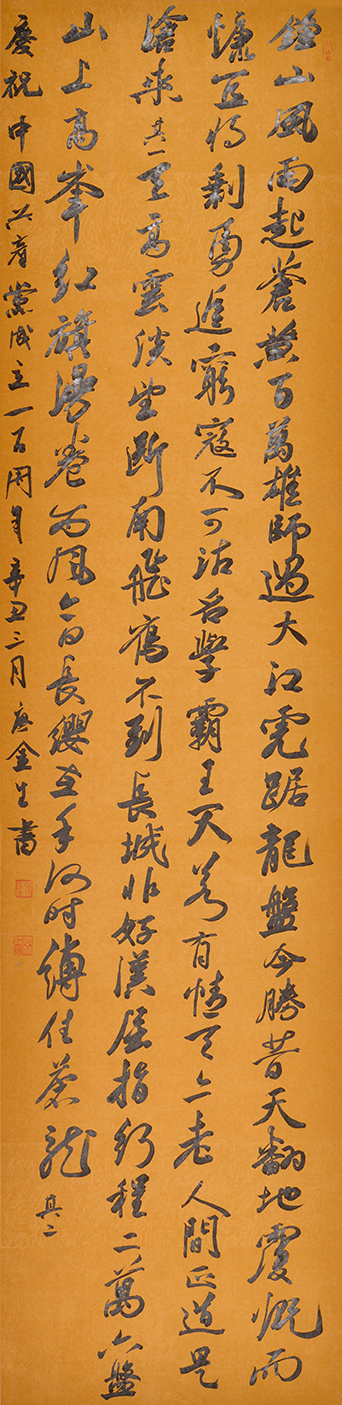 鍾山風雨起蒼黃百萬雄師過大江虎踞龍盤今勝昔天翻地覆慨而
慷宜將剩勇追窮寇不可沽名學霸王天若有情天亦老人間正道是
滄桑其一天高雲淡望斷南飛雁不到長城非好漢屈指行程二萬六盤
山上高峯紅旗漫卷西風今日長纓在手何時縛住蒼龍其二
慶祝中國共產黨成立一百周年辛丑三月唐金生書